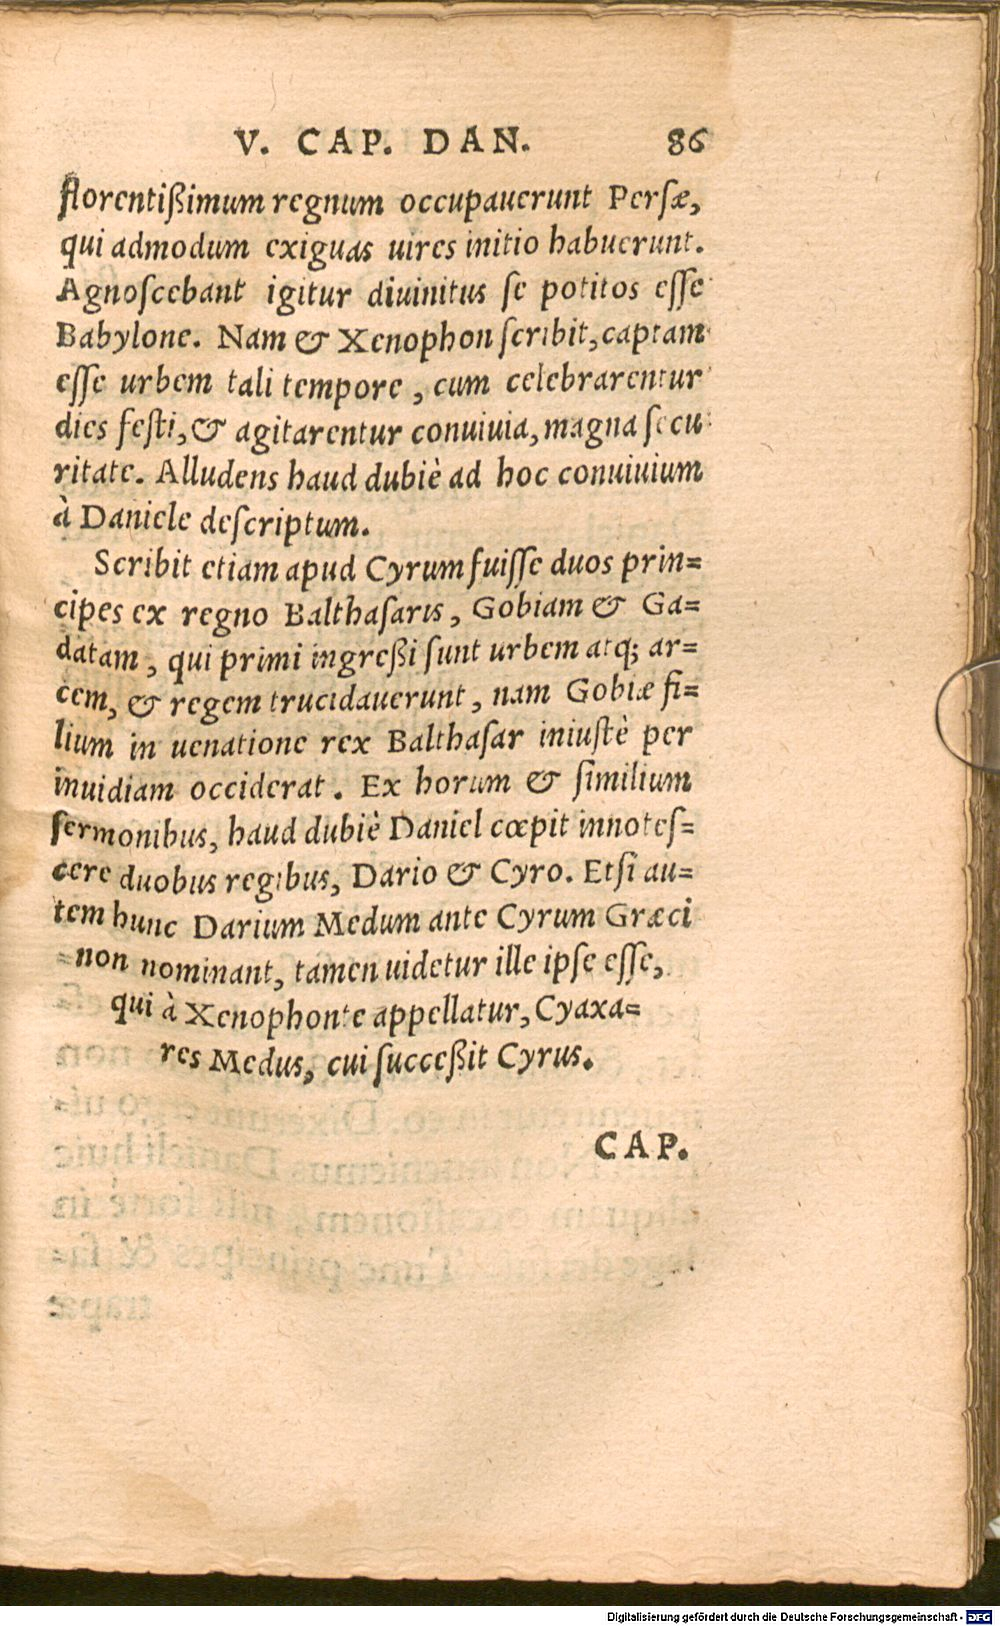 V. CAP. DAN. 86
florentißimum regnum occupauerunt Perſæ,
qui admodum exiguas uires initio habuerunt.
Agnoſcebant igitur diuinitus ſe potitos eſſe
Babylone. Nam & Xenophon ſcribit, captam
eſſe urbem tali tempore, cum celebrarentur
dies feſti, & agitarentur conuiuia, magna ſecu
ritate. Alludens haud dubiè ad hoc conuiuium
à Daniele deſcriptum.
Scribit etiam apud Cyrum fuiſſe duos prin=
cipes ex regno Balthaſaris, Gobiam & Ga=
datam, qui primi ingreßi ſunt urbem atq; ar=
cem, & regem trucidauerunt, nam Gobiæ fi=
lium in uenatione rex Balthaſar iniuſtè per
inuidiam occiderat. Ex horum & ſimilium
ſermonibus, haud dubiè Daniel cœpit innoteſ=
cere duobus regibus, Dario & Cyro. Etſi au=
tem hunc Darium Medum ante Cyrum Græci
non nominant, tamen uidetur ille ipſe eſſe,
qui à Xenophonte appellatur, Cyaxa=
res Medus, cui ſucceßit Cyrus.
CAP.
Digitalisierung gefördert durch die Deutsche Forschungsgemeinschaft - DFG